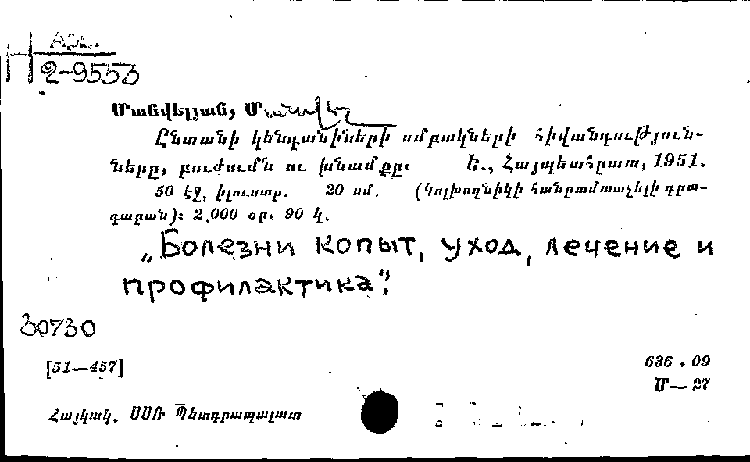 Н
2-9553
Մանվելյան, Մանվել
Ընտանի կենդանիների սմբակների հիվանդություն-
ները, բուժումն ու խնամքը. Ե., Հայպետհրատ, 1951.
50 էջ, իլուստր. 20 սմ. (Կոլխոզնիկի հանրամատչելի գրա-
դարան): 2.000 օր. 90 կ.
„Болезни копыт, уход, лечение и
профилактика".
30730
[51—457]
636.09
Մ—27
Հայկակ. ՍՍՌ Պետգրապալատ